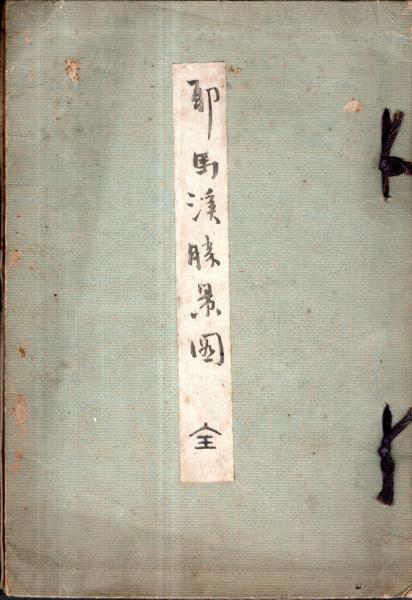 耶馬溪勝景圖 全